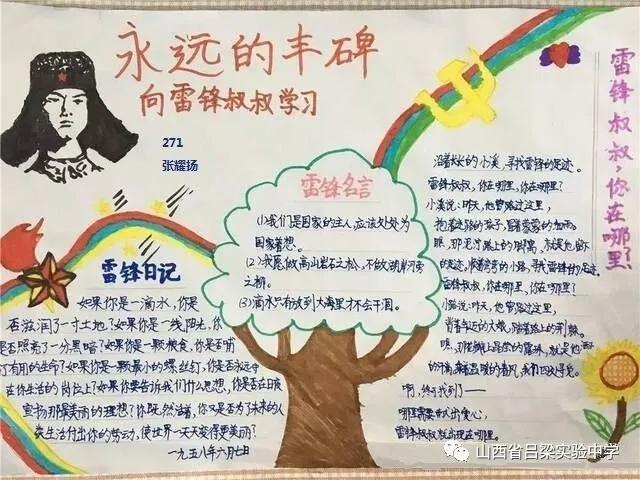 永远的丰碑
向雷锋叔叔学习
271
张耀扬
雷锋日记
如果你是一滴水，你是
否滋润了一寸土地？如果你是一线阳光，你
是否照亮了一分黑暗？如果你是一颗粮食，你是否哺
了有用的生命？如果你是一颗最小的螺丝钉，你是否永远守
在你生活的岗位上？如果你要告诉我们什么思想，你是否在日夜
宣扬那最美丽的理想？你既然活着，你又是否为了未来的人
类生活付出你的劳动，使世界一天天变得更美丽？
一九五八年六月七日
雷锋名言
(1)我们是国家的主人，应该处处为
国家着想。
(2)我愿做高山岩石之松，不做湖岸河旁
之柳。
(3)滴水只有放到大海里才不会干涸。
雷锋叔叔，你在哪里
沿着长长的小溪，寻找雷锋的足迹。
雷锋叔叔，你在哪里，你在哪里？
小溪说：昨天，他曾路过这里，
抱着迷路的孩子，冒着蒙蒙的细雨。
瞧，那泥泞路上的脚窝，就是他留下
的足迹。顺着弯弯的小路，寻找雷锋的足迹。
雷锋叔叔，你在哪里，你在哪里？
小路说：昨天，他曾路过这里，
背着年迈的大娘，踏着路上的荆棘。
瞧，那花瓣上晶莹的露珠，就是他
的汗滴，乘着温暖的春风，我们四处寻觅。
啊，终于找到了——
哪里需要献出爱心，
雷锋叔叔就出现在哪里。
山西省吕梁实验中学